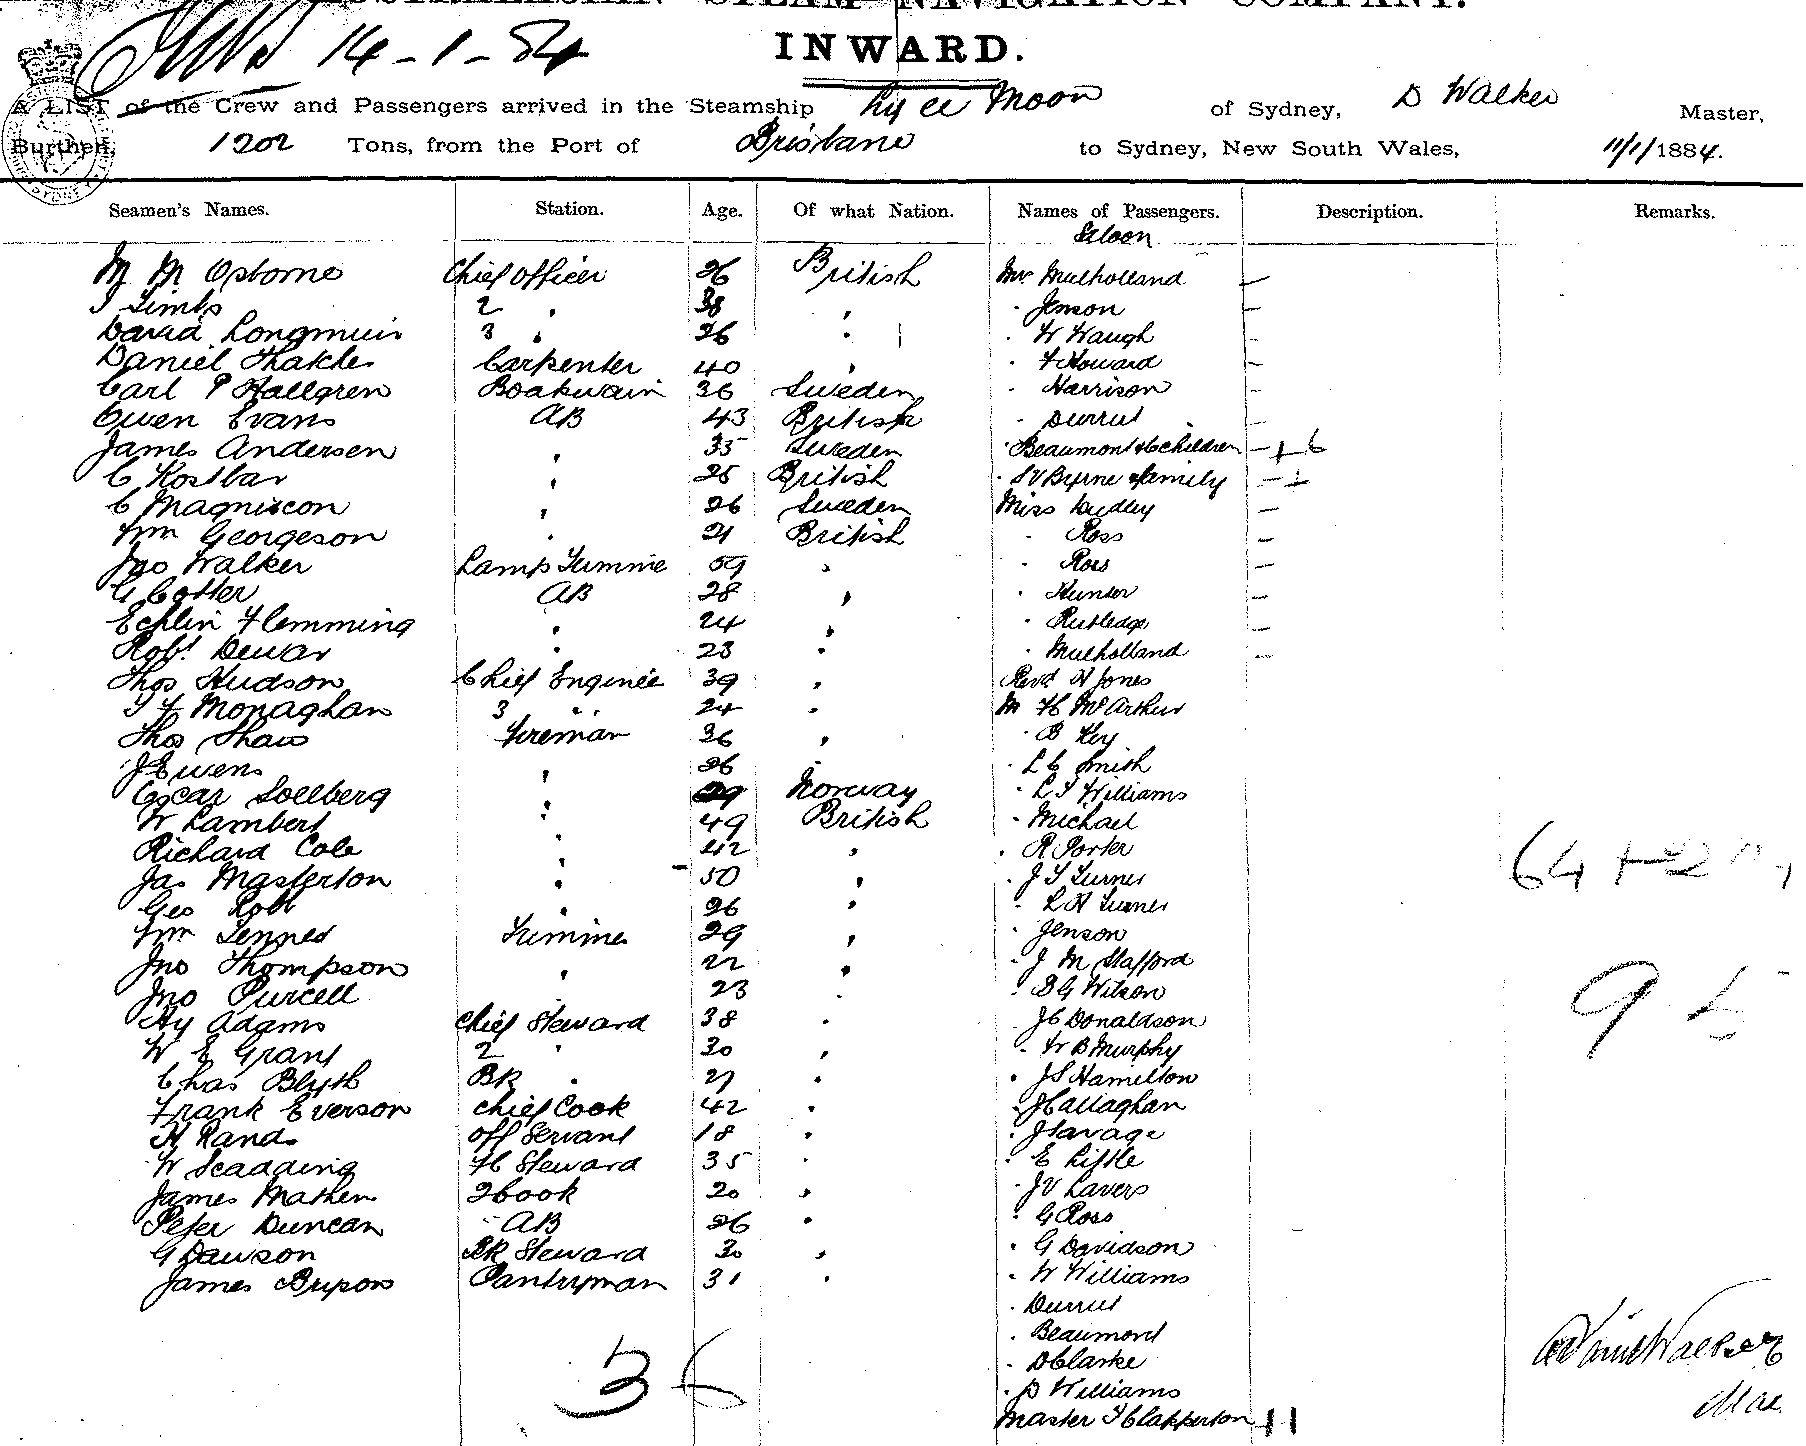 STEAM NAVIGATION COMPANY.
14-1-84 INWARD.
A LIST of the Crew and Passengers arrived in the Steamship Ly ee Moon of Sydney, D Walker Master,
Burthen, 1202 Tons, from the Port of Brisbane to Sydney, New South Wales, 11/1/1884.
Seamen's Names. Station. Age. Of what Nation. Names of Passengers. Description. Remarks.
Saloon
M M Osborne Chief Officer 26 British Mr Mulholland —
Timbs 2 " 38 " " Jenson —
David Longmuir 3 " 26 " " W Waugh —
Daniel Carpenter 40 " " Howard —
Carl P Hallgren Boatswain 36 Sweden " Harrison —
Owen Evans AB 43 British " —
James Andersen " 35 Sweden " Beaumont & 6 children — + 6
C Kostbar " 25 British " Byrne & family —
C Magniscon " 26 Sweden Miss Dudley —
Wm Georgeson " 21 British " Ross —
Jno Walker Lamp Trimmer 59 " " Ross —
G Cotter AB 28 " " Hunter —
Echlin Flemming " 24 " " Rutledge —
Robt Dewar " 23 " " Mulholland —
Thos Hudson Chief Enginee 39 " Revd H Jones
Monaghan 3 " 24 " M H McArthur
Thos Shaw Fireman 36 " " B Key
J Ewens " 26 " L C Smith
Oscar Sollberg " 29 Norway " Williams
W Lambert " 49 British " Michael
Richard Cole " 42 " " R Porter
Jas Masterton " 50 " " J S Turner
Geo Robb " 26 " " L H Turner
Wm Trimmer 29 " " Jenson
Jno Thompson " 22 " " J M Stafford
Jno Purcell " 23 " " B G Wilson
Hy Adams Chief Steward 38 " J C Donaldson
W E Grant 2 " 30 " " W B Murphy
Chas Blyth BK " 27 " " J S Hamilton
Frank Everson Chief Cook 42 " " J Callaghan
H Rand Off Servant 18 " " J Savage
W Scadding Steward 35 " " E Little
James Mathen 2 Cook 20 " " J V Lavers
Peter Duncan AB 26 " " G Ross
G Dawson BK Steward 30 " " G Davidson
James Bryson Pantryman 31 " " W Williams
"
" Beaumont
" D Clarke
" D Williams
Master Clapperton 11
36
64
9
Walker